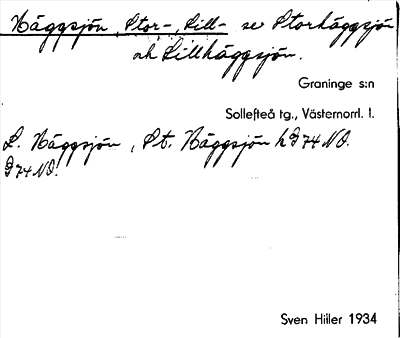 Häggsjön, Stor-, Lill- se Storhäggsjön
och Lillhäggsjön.
Graninge s:n
Sollefteå tg., Västernorrl. l.
L. Häggsjön, St. Häggsjön k G74 NO.
G74 NO.
Sven Hiller 1934